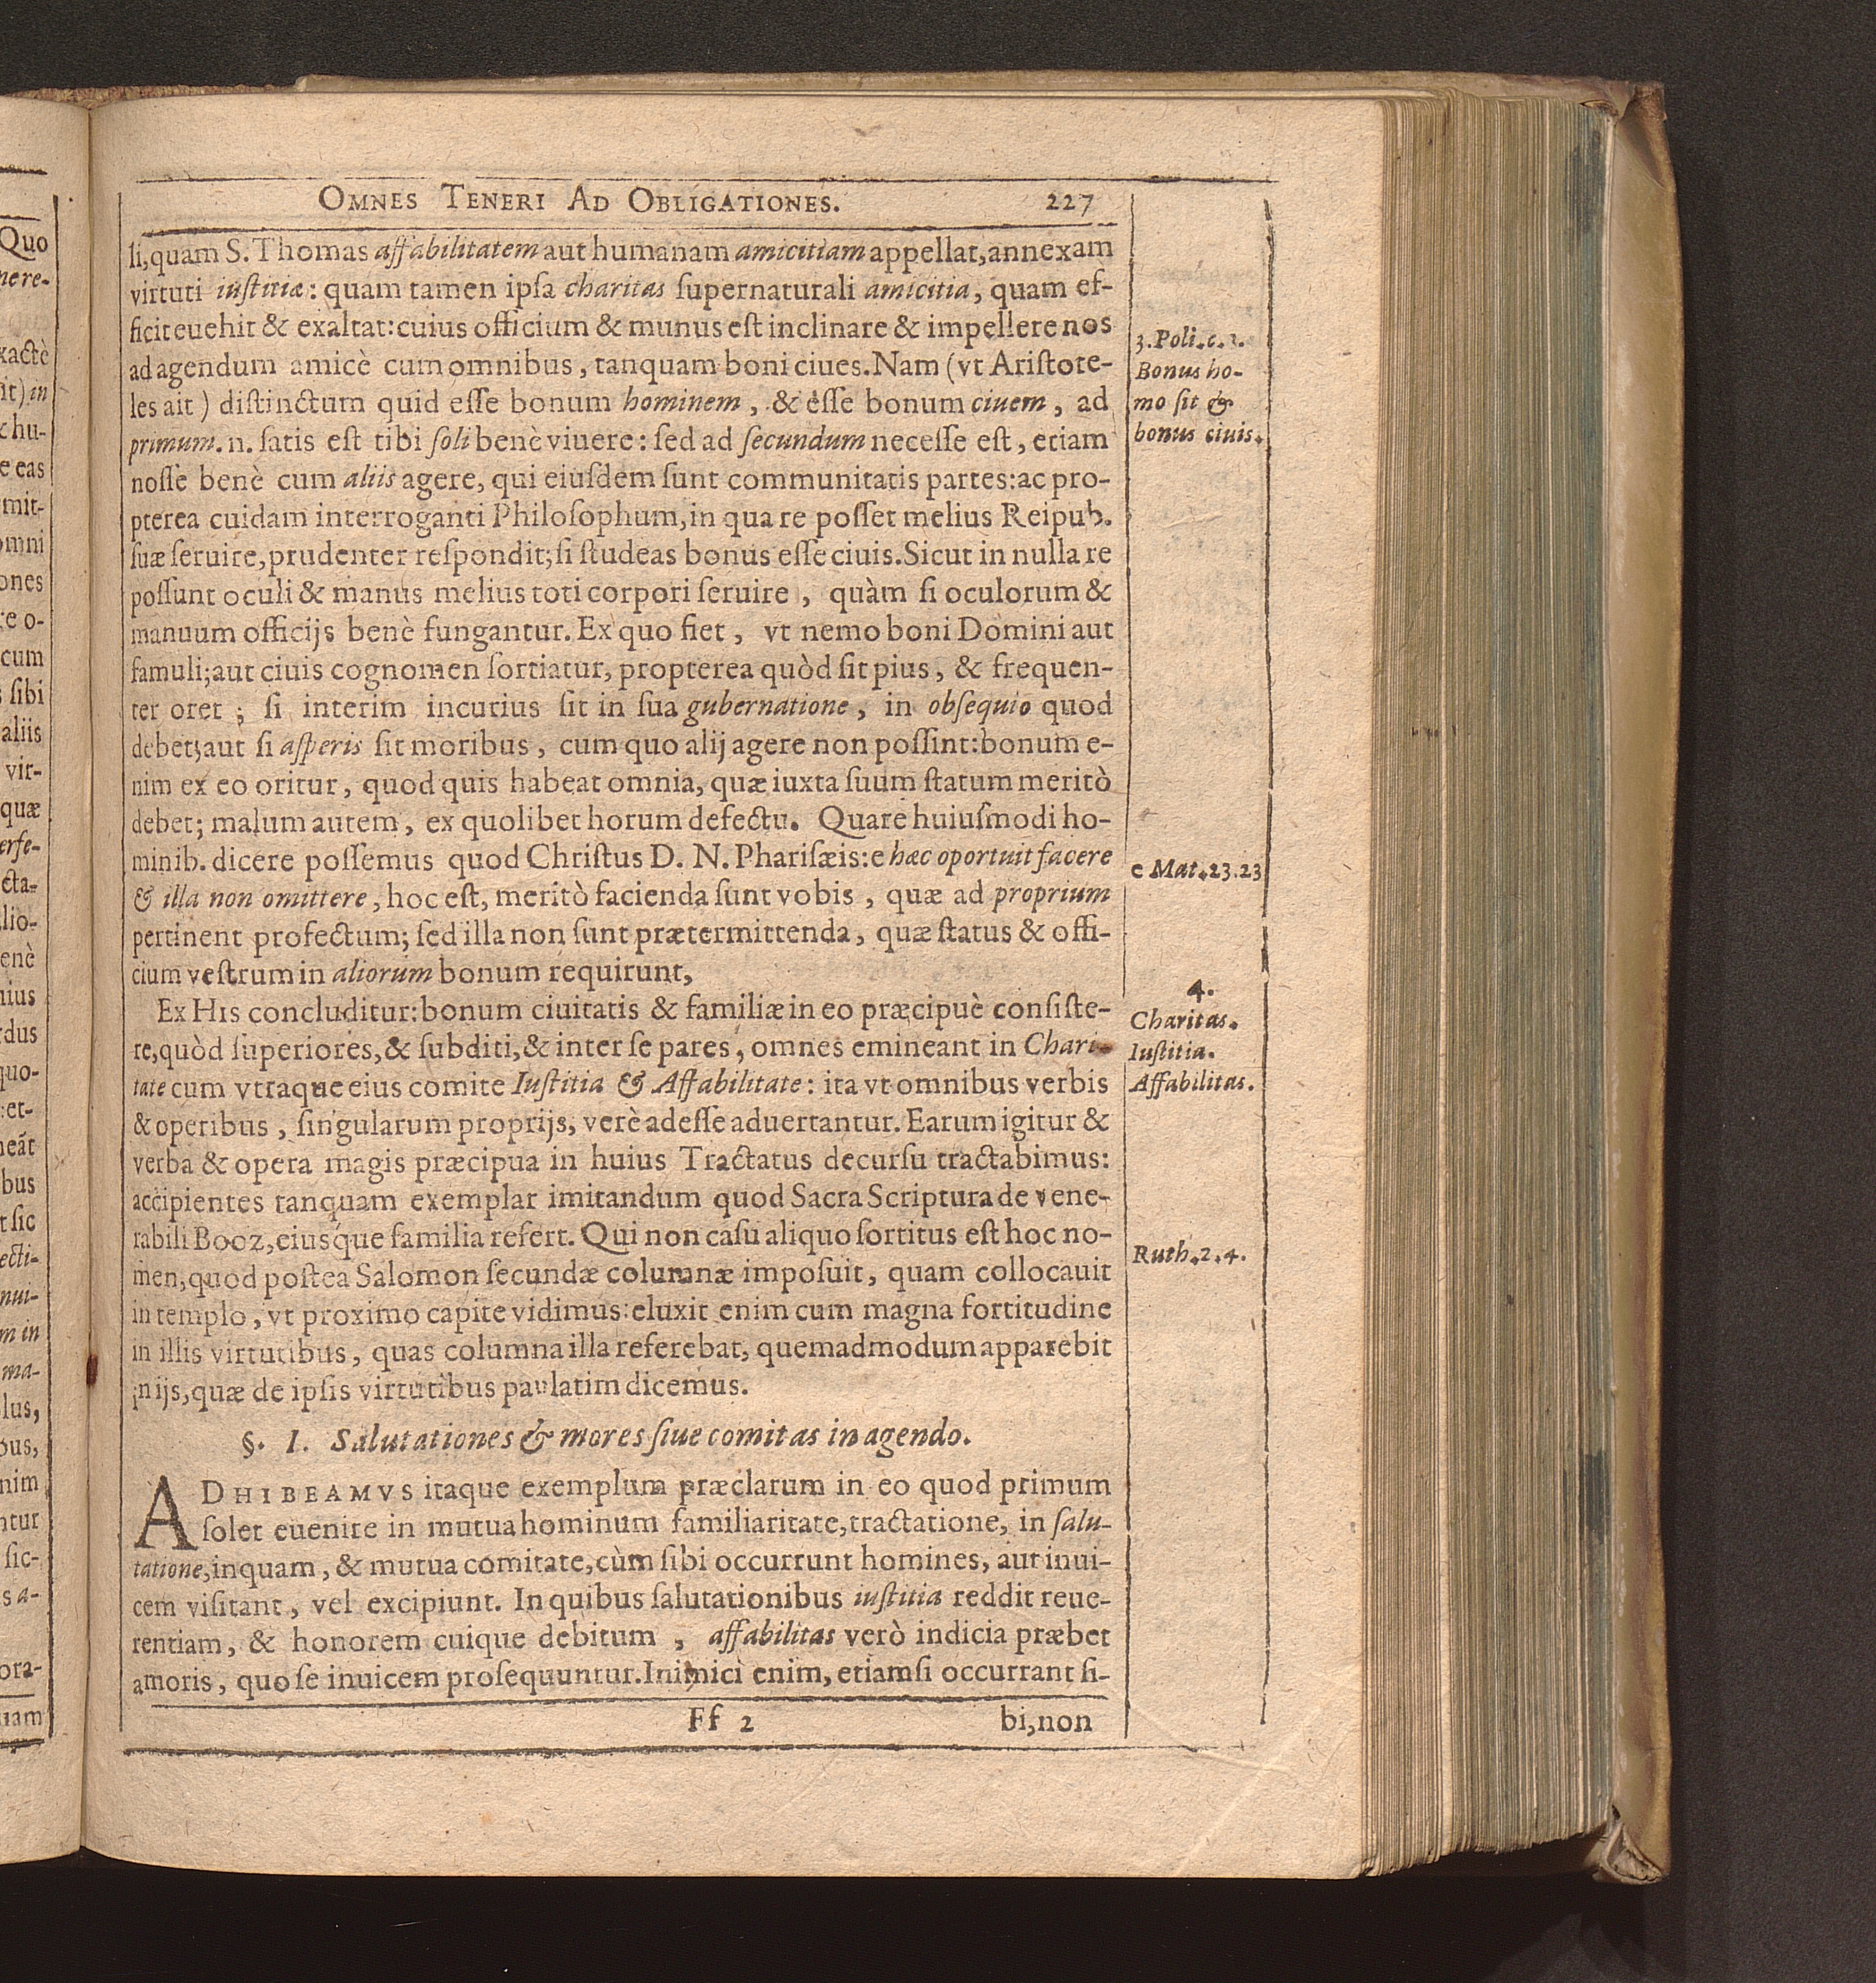 OMNES TENERI AD OBLIGATIONES. 227
li, quam S. Thomas affabilitatem aut humanam amicitiam appellat, annexam
virtuti iustitiæ: quam tamen ipsa charitas supernaturali amicitia, quam ef-
ficit euehit & exaltat: cuius officium & munus est inclinare & impellere nos
ad agendum amicè cum omnibus, tanquam boni ciues. Nam (vt Aristote-
les ait) distinctum quid esse bonum hominem, & esse bonum ciuem, ad
primum. n. satis est tibi soli benè viuere: sed ad secundum necesse est, etiam
nosse benè cum aliis agere, qui eiusdem sunt communitatis partes: ac pro-
pterea cuidam interroganti Philosophum, in qua re posset melius Reipub.
suæ seruire, prudenter respondit; si studeas bonus esse ciuis. Sicut in nulla re
possunt oculi & manus melius toti corpori seruire, quàm si oculorum &
manuum officijs benè fungantur. Ex quo fiet, vt nemo boni Domini aut
famuli; aut ciuis cognomen sortiatur, propterea quòd sit pius, & frequen-
ter oret; si interim incurius sit in sua gubernatione, in obsequio quod
debet; aut si asperis sit moribus, cum quo alij agere non possint: bonum e-
nim ex eo oritur, quod quis habeat omnia, quæ iuxta suum statum meritò
debet; malum autem, ex quolibet horum defectu. Quare huiusmodi ho-
minib. dicere possemus quod Christus D. N. Pharisæis: e hæc oportuit facere
& illa non omittere, hoc est, meritò facienda sunt vobis, quæ ad proprium
pertinent profectum; sed illa non sunt prætermittenda, quæ status & offi-
cium vestrum in aliorum bonum requirunt,
Ex His concluditur: bonum ciuitatis & familiæ in eo præcipuè consiste-
re, quòd superiores, & subditi, & inter se pares, omnes emineant in Chari-
tate cum vtraque eius comite Iustitia & Affabilitate: ita vt omnibus verbis
& operibus, singularum proprijs, verè adesse aduertantur. Earum igitur &
verba & opera magis præcipua in huius Tractatus decursu tractabimus:
accipientes tanquam exemplar imitandum quod Sacra Scriptura de vene-
rabili Booz, eiusque familia refert. Qui non casu aliquo sortitus est hoc no-
men, quod postea Salomon secundæ columnæ imposuit, quam collocauit
in templo, vt proximo capite vidimus: eluxit enim cum magna fortitudine
in illis virtutibus, quas columna illa referebat, quemadmodum apparebit
in ijs, quæ de ipsis virtutibus paulatim dicemus.
§. I. Salutationes & mores siue comitas in agendo.
ADHIBEAMVS itaque exemplum præclarum in eo quod primum
solet euenire in mutua hominum familiaritate, tractatione, in salu-
tatione, inquam, & mutua comitate, cùm sibi occurrunt homines, aut inui-
cem visitant, vel excipiunt. In quibus salutationibus iustitia reddit reue-
rentiam, & honorem cuique debitum, affabilitas verò indicia præbet
amoris, quo se inuicem prosequuntur. Inimici enim, etiamsi occurrant si-
Ff 2 bi, non
3. Poli. c. 2.
Bonus ho-
mo sit &
bonus ciuis.
e Mat. 23. 23
4.
Charitas.
Iustitia.
Affabilitas.
Ruth. 2. 4.
Quo
nere-
xactè
sit) in
& hu-
e eas
mit-
omni
ones
re o-
cum
s sibi
aliis
vir-
quæ
erfe-
cta-
lio-
enè
nius
rdus
quo-
et-
neãt
bus
t sic
ecti-
nui-
m in
ma-
lus,
ous,
nim
ntur
sic-
s a-
ora-
uam